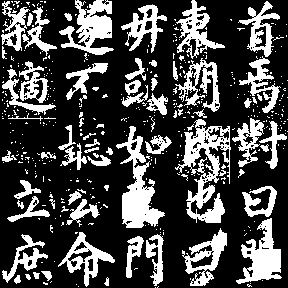 首焉對曰盟
東門氏也曰
毋或如門
遂不聽公命
殺適立庶